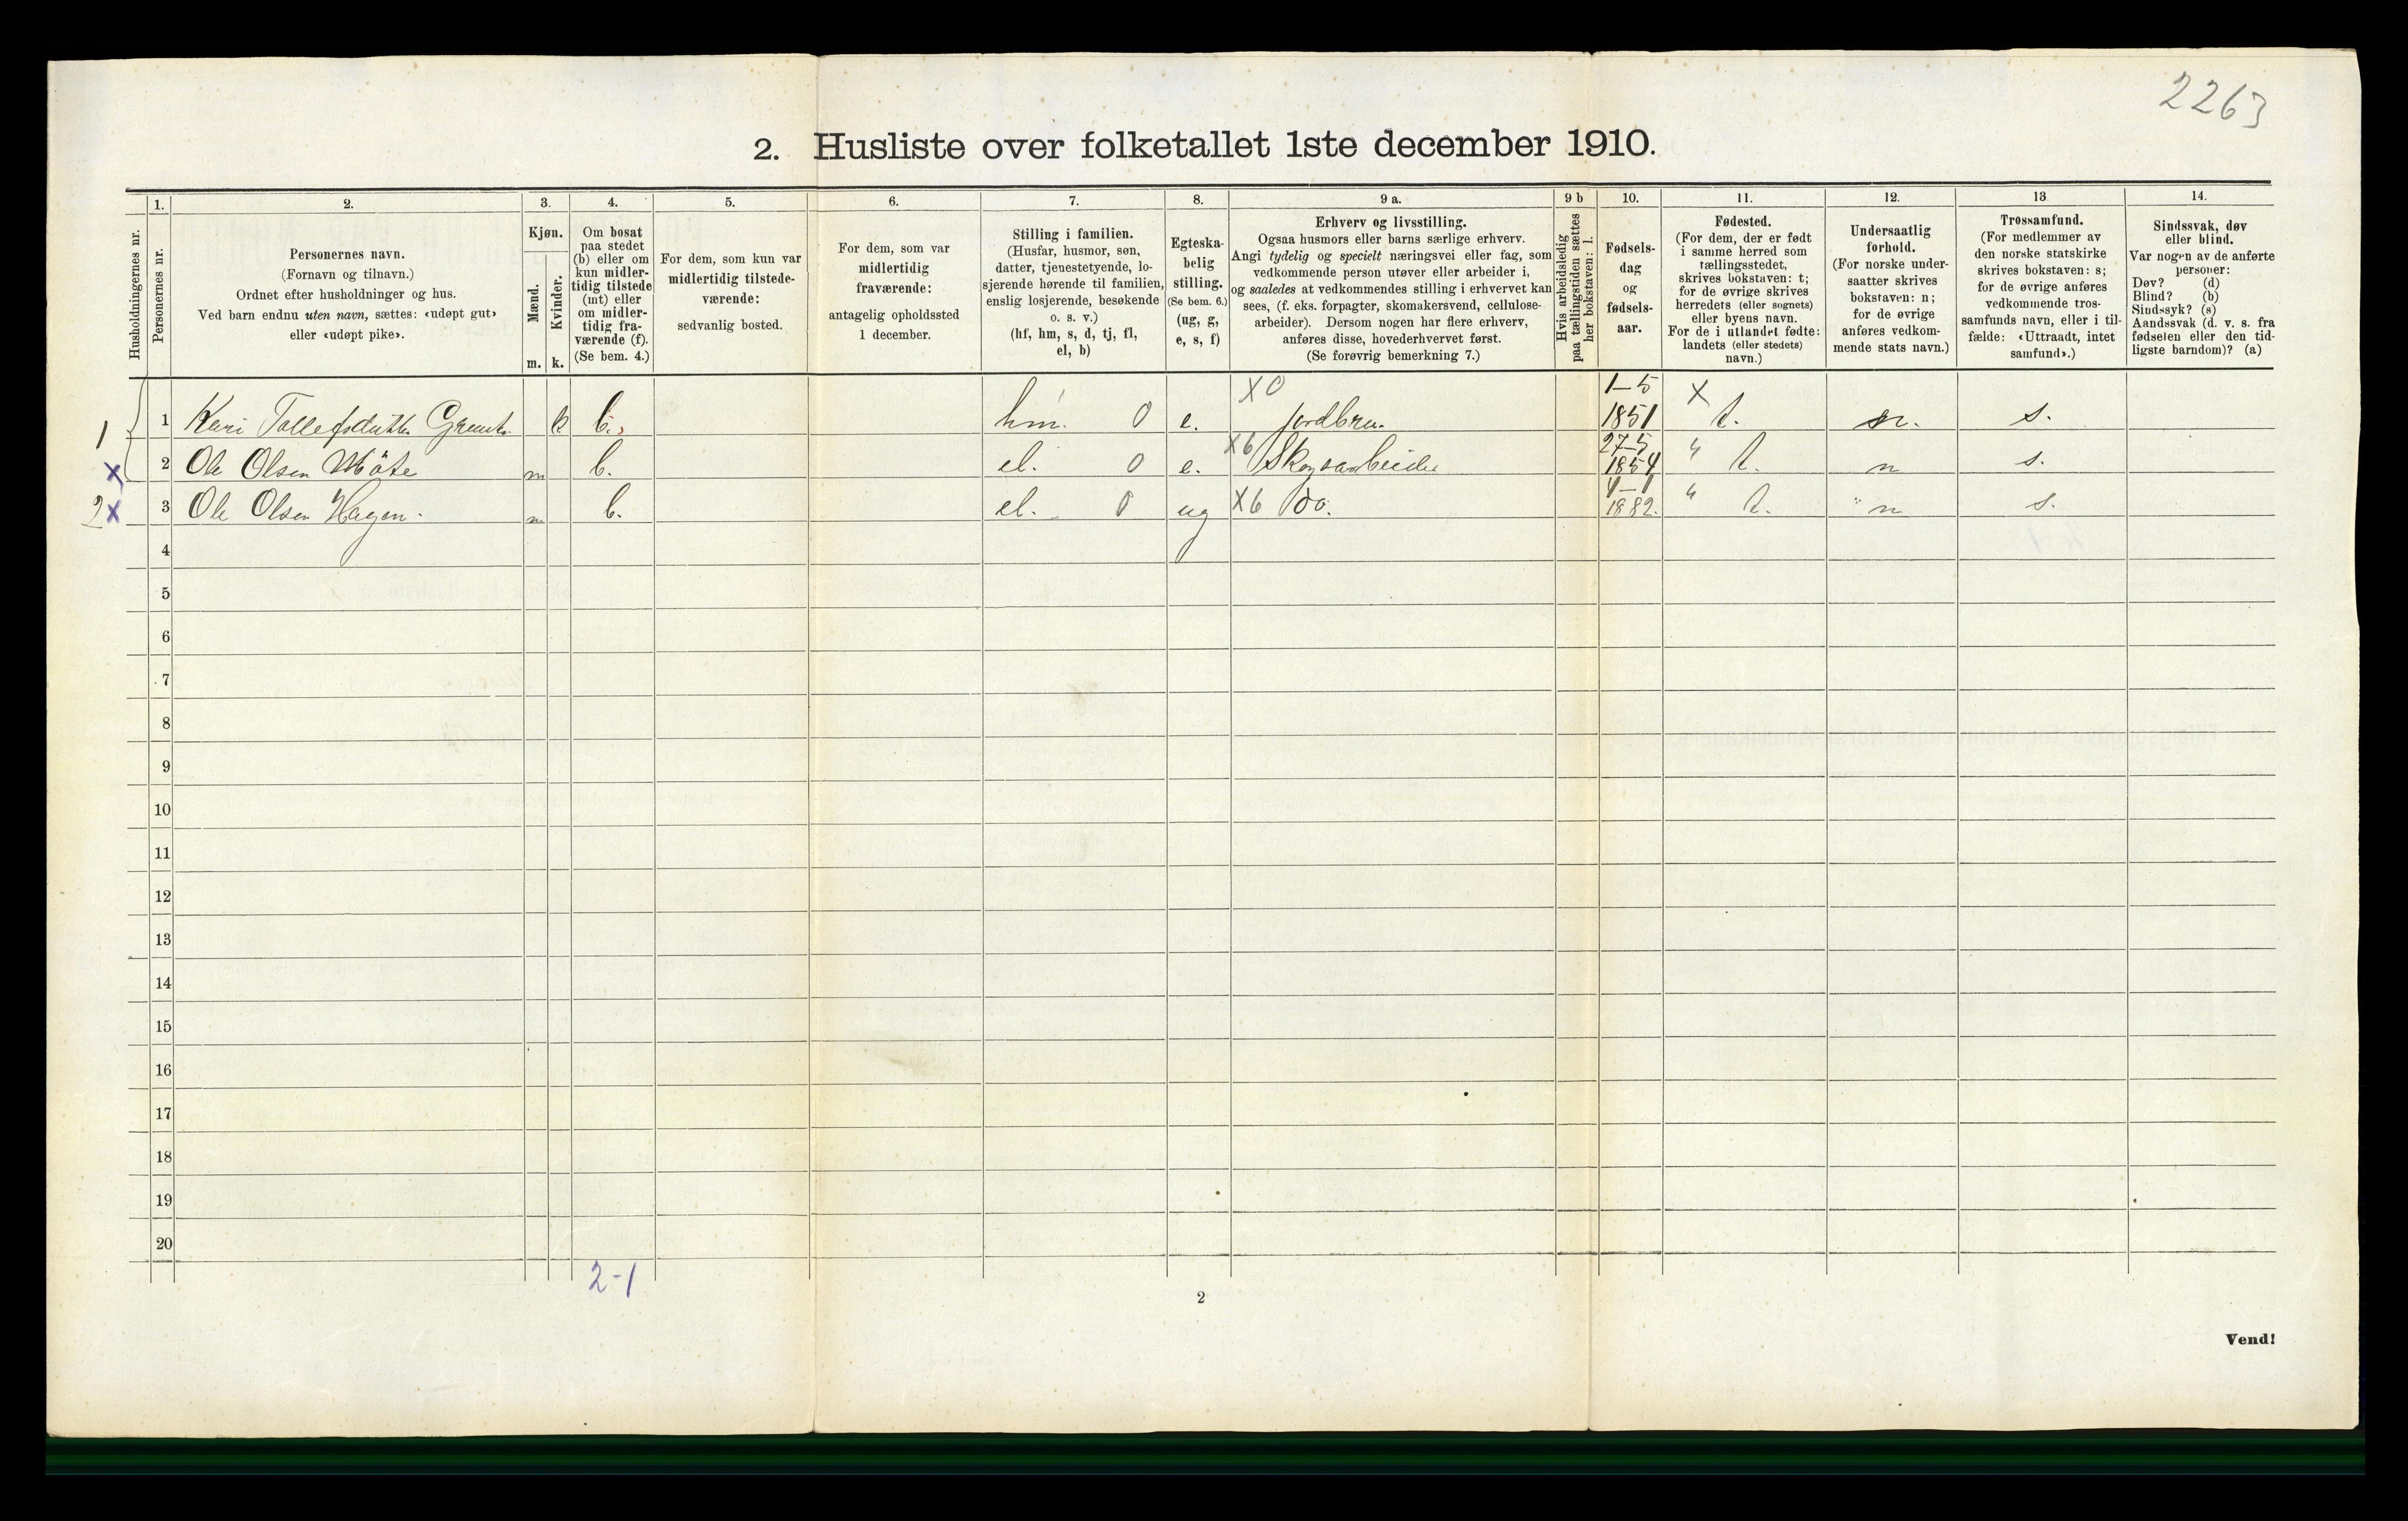 2263
2. Husliste over folketallet 1ste december 1910.
Husholdningernes nr.
1.
Personernes nr.
2.
Personernes navn.
(Fornavn og tilnavn.)
Ordnet efter husholdninger og hus.
Ved barn endnu uten navn, sættes: «udøpt gut»
eller «udøpt pike».
3.
Kjøn.
Mænd.
Kvinder.
m. k.
4.
Om bosat
paa stedet
(b) eller om
kun midler-
tidig tilstede
(mt) eller
om midler-
tidig fra-
værende (f).
(Se bem. 4.)
5.
For dem, som kun var
midlertidig tilstede-
værende:
sedvanlig bosted.
6.
For dem, som var
midlertidig
fraværende:
antagelig opholdssted
1 december.
7.
Stilling i familien.
(Husfar, husmor, søn,
datter, tjenestetyende, lo-
sjerende hørende til familien,
enslig losjerende, besøkende
o. s. v.)
(hf, hm, s, d, tj, fl,
el, b)
8.
Egteska-
belig
stilling.
(Se bem. 6.)
(ug, g,
e, s, f)
9 a.
Erhverv og livsstilling.
Ogsaa husmors eller barns særlige erhverv.
Angi tydelig og specielt næringsvei eller fag, som
vedkommende person utøver eller arbeider i,
og saaledes at vedkommendes stilling i erhvervet kan
sees, (f. eks. forpagter, skomakersvend, cellulose-
arbeider). Dersom nogen har flere erhverv,
anføres disse, hovederhvervet først.
(Se forøvrig bemerkning 7.)
9 b
Hvis arbeidsledig
paa tællingstiden sættes
her bokstaven: l.
10.
Fødsels-
dag
og
fødsels-
aar.
11.
Fødested.
(For dem, der er født
i samme herred som
tællingsstedet,
skrives bokstaven: t;
for de øvrige skrives
herredets (eller sognets)
eller byens navn.
For de i utlandet fødte:
landets (eller stedets)
navn.)
12.
Undersaatlig
forhold.
(For norske under-
saatter skrives
bokstaven: n;
for de øvrige
anføres vedkom-
mende stats navn.)
13
Trossamfund.
(For medlemmer av
den norske statskirke
skrives bokstaven: s;
for de øvrige anføres
vedkommende tros-
samfunds navn, eller i til-
fælde: «Uttraadt, intet
samfund».)
14.
Sindssvak, døv
eller blind.
Var nogen av de anførte
personer:
Døv? (d)
Blind? (b)
Sindssyk? (s)
Aandssvak (d. v. s. fra
fødselen eller den tid-
ligste barndom)? (a)
X0 1-5 X
1 1 Kari k b. hm. 0 e. Jordbru. 1851 t. n. s.
27-5
X 2 Ole Olsen m b. el. 0 e. X6 Skogsarbeider 1854 " t. n s.
2X 3 Ole Olsen Hagen. m b. el. 0 ug X6 do. 1882. " t. " n s.
4
5
6
7
8
9
10
11
12
13
14
15
16
17
18
19
20
2-1
2
Vend!